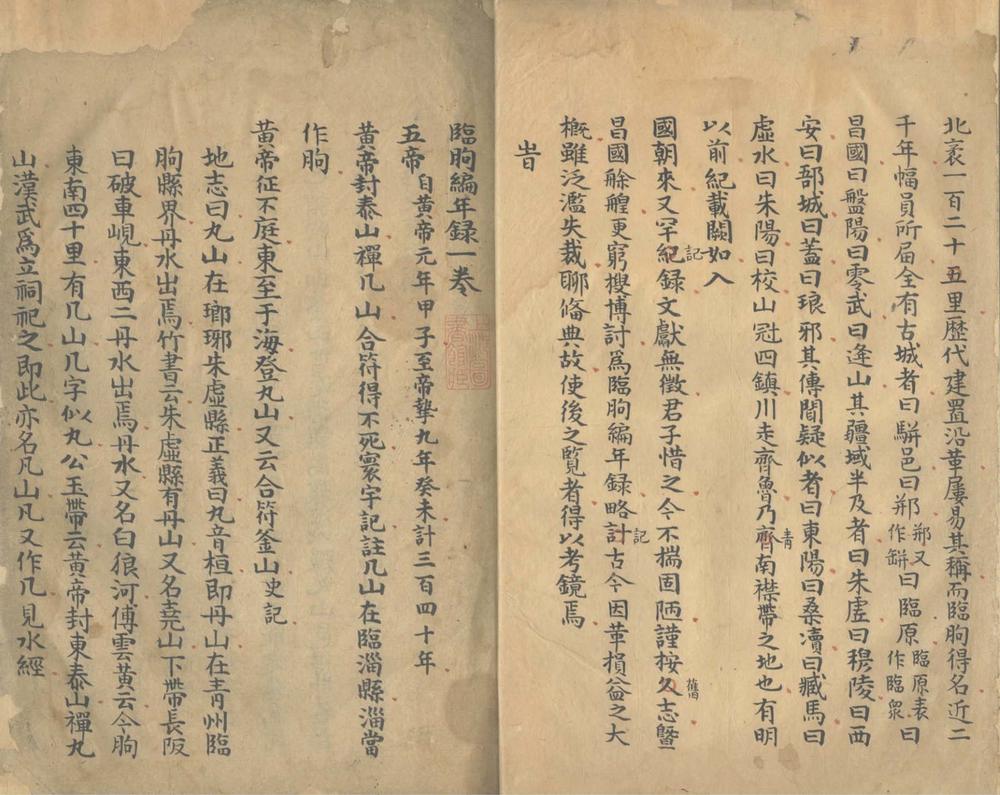 北袤一百二十五里歴代建置沿革屢易其稱而臨朐得名近二
千年幅員所届全有古城者曰駢邑曰郱郱又作缾曰臨原臨原表作臨衆曰
昌國曰盤陽曰零武曰逄山其疆域半及者曰朱虗曰穆陵曰西
安曰郚城曰蓋曰琅邪其傳聞疑似者曰東陽曰桑瀆曰臧馬曰
虗水曰朱陽曰校山冠四鎮川走齊魯乃齊青南襟帶之地也有明
以前紀載闕如入
國朝來又罕紀記録文獻無徵君子惜之今不揣固陋謹桉久舊志曁
昌國艅艎更窮搜博討爲臨朐編年録略計記古今因革損益之大
槪雖泛濫失裁聊俻典故使後之覽者得以考鏡焉
旹
臨朐編年録一卷
五帝自黄帝元年甲子至帝摯九年癸未計三百四十年
黄帝封泰山禪几山合符得不死寰宇記註几山在臨淄縣淄當
作朐
黄帝征不庭東至于海登丸山又云合符釜山史記
地志曰丸山在瑯琊朱虛縣正義曰丸音桓即丹山在青州臨
朐縣界丹水出焉竹書云朱虛縣有丹山又名堯山下帶長阪
曰破車峴東西二丹水出焉丹水又名白狼河傅雲黄云今朐
東南四十里有几山几字似丸公玉帶云黄帝封東泰山禪丸
山漢武爲立祠祀之即此亦名凡山凡又作几見水經